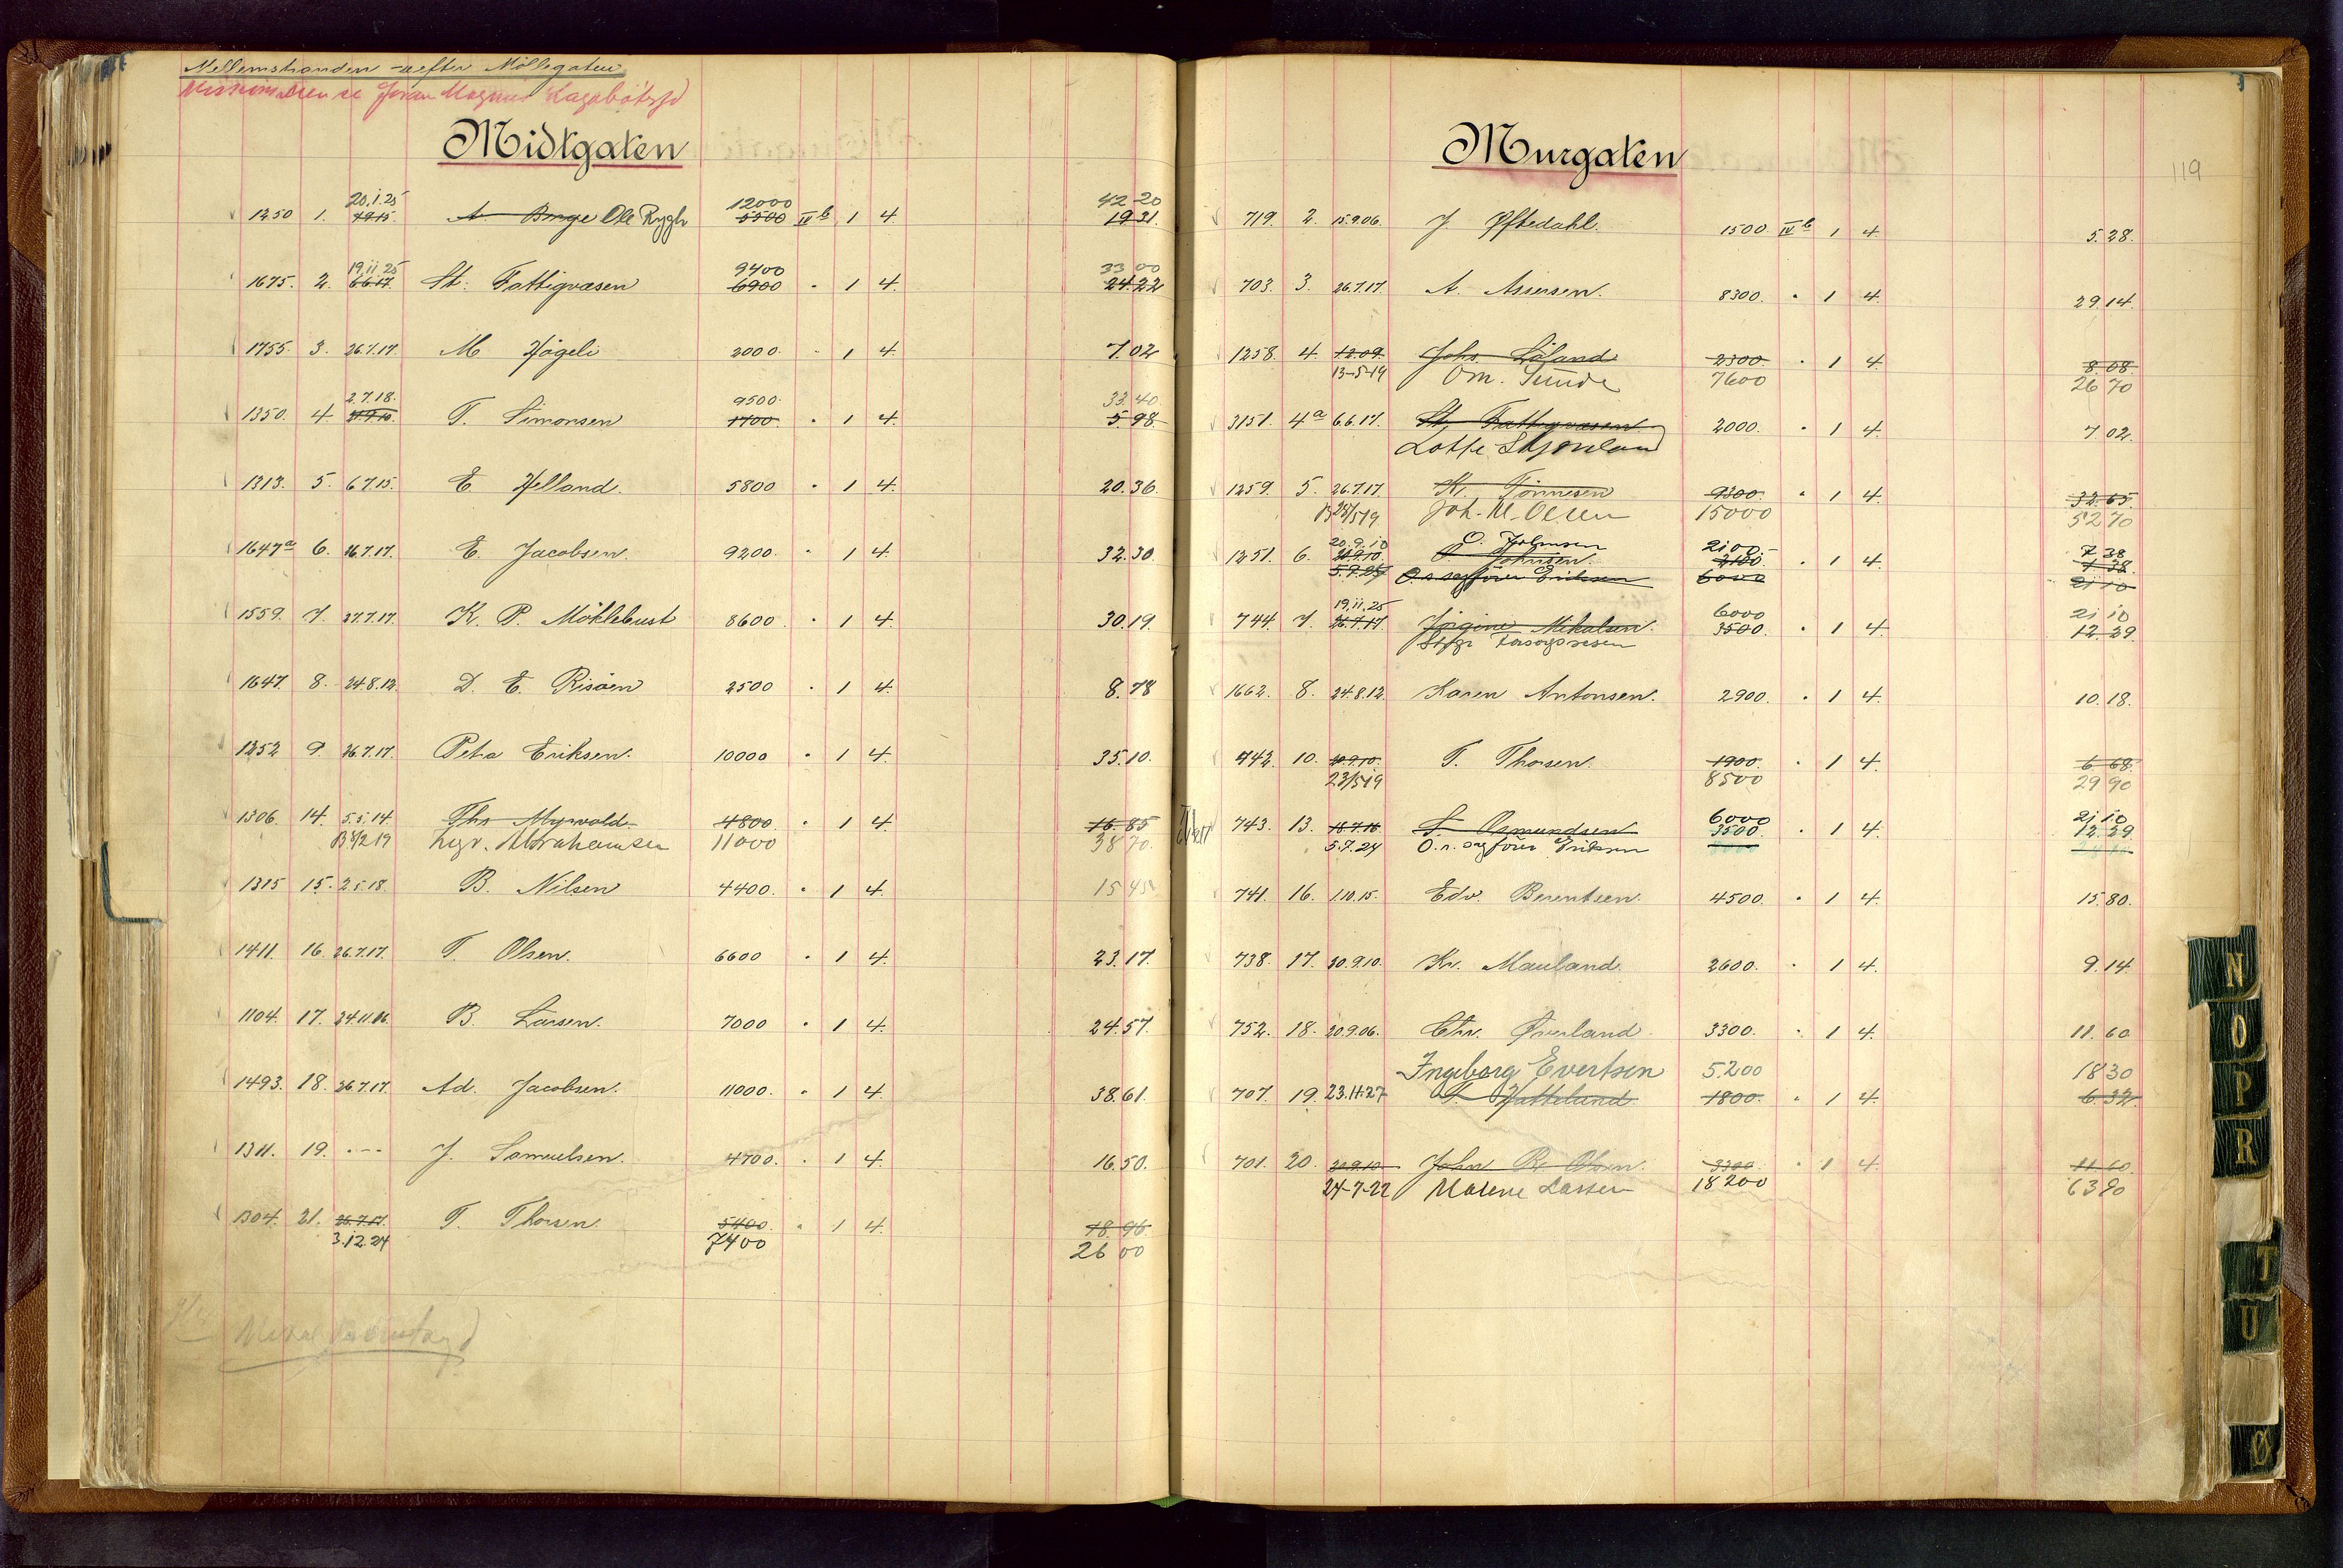 Mellemstranden - efter Möllegaten
Midtgaten
20.1.25 12000 42 20
1250 1. 4915 A. Berge Ole Rygh 5500 IV b 1 4 19 31.
19.11.25 9400 33 00
1675. 2. 6617 St. Fattigvæsen 6900 " 1 4. 24.22
1755. 3. 26.7.17. M. Högeli 2000. " 1 4. 7.02
2.7.18. 9500. 33.40
1350. 4. 20.9.10. T. Simonsen 1700. " 1 4. 5.98
1313. 5. 6.7.15. E. Helland. 5800 " 1 4. 20.36.
1647a 6. 26.7.17. E. Jacobsen. 9200. " 1 4 32.30.
1559. 7. 27.7.17. K. P. Möklebust 8600. " 1 4 30.19.
1647. 8. 24.8.12. D. E. Risöen 2500 " 1 4. 8.78
1252 9. 26.7.17. Petra Eriksen. 10000 " 1 4. 35.10.
1306. 14. 5.5.14. Ths Myrvold 4800. " 1 4. 16.85
B8/2 19 Abrahamsen 11000 38 70.
1315 15. 2.5.18. B. Nilsen 4400. " 1 4. 15.45
1411. 16. 26.7.17. T. Olsen. 6600 " 1 4. 23.17.
1104. 17. 24.11.16. B. Larsen. 7000 " 1 4. 24.57.
1493. 18. 26.7.17. Ad. Jacobsen. 11000. " 1 4. 38.61.
1311. 19. " - - J. Samuelsen. 4700. " 1 4. 16.50.
1304. 21. 26.7.17. T. Thorsen. 5400. " 1 4. 18.96.
3.12.24 7400 26 00
Murgaten
119
719. 2. 15.9.06. J. Oftedahl. 1500. IV b 1 4. 5.28.
703. 3. 26.7.17. A. Assersen. 8300. " 1 4. 29.14.
1258. 4. 12.09. Johs. Löland 2300. " 1 4. 8.08.
13-5-19 Om. Sunde 7600 26 70
3151. 4a 6.6.17. St. Fattigvæsen 2000. " 1 4. 7 02.
Lotte
1259. 5. 26.7.17. K. Tönnesen 9300. " 1 4. 32.65.
B28/519 Joh. M. Olsen 15000 52 70
20.9.10 O. Johnsen 2100.- 7 38
1251. 6. 20.9.10. O. Johnsen. 2100. " 1 4. 7 38.
5.7.24 O.r. sagförer Eriksen 6000 21 10
19.11.25 6000 21 10
744. 7. 26.7.17. Jörgine Mikalsen. 3500. " 1 4. 12.29
Stgr Forsorgsvesen
1662. 8. 24.8.12. Karen Antonsen. 2900. " 1 4. 10.18.
742. 10. 20.9.10. T. Thorsen. 1900. " 1 4. 6 68.
23/519 8500 29 90
6000 21 10
743. 13. 18.7.16 S. Osmundsen 3500. " 1 4. 12.29
5.7.24 O.r. sagförer Eriksen
741. 16. 1.10.15. Edv. Berentsen. 4500. " 1 4. 15.80.
738. 17. 20.9.10. Kr. Mauland. 2600. " 1 4. 9.14
752. 18. 20.9.06. Chr. Överland. 3300. " 1 4. 11.60
Ingeborg Evertsen 5.200 18 30
707. 19. 23.11.27 T. Hatteland. 1800. " 1 4. 6.32.
701. 20. 20.9.10 John B. Olsen. 3300. " 1 4. 11.60.
24-7-22 Malene Larsen 18200 63 90
N
O
P
R
T
U
Ø